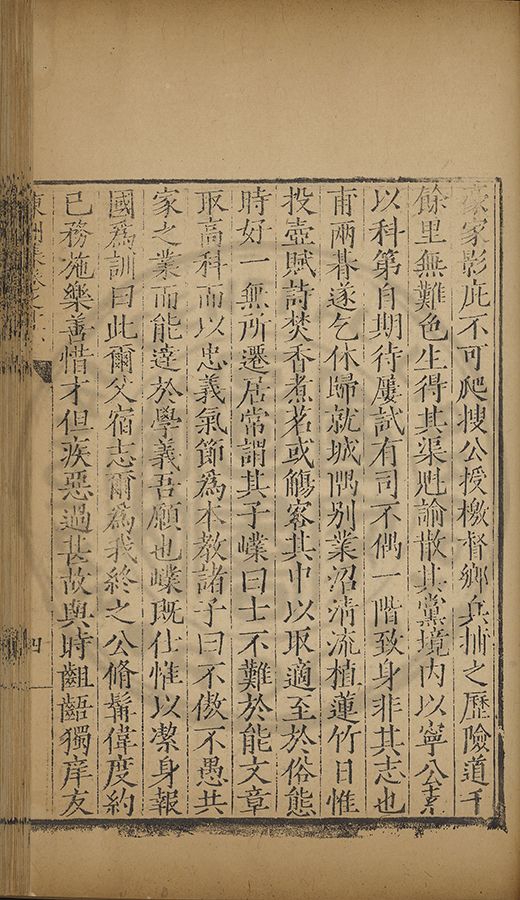 豪家影庇不可爬搜公授檄督鄉兵捕之歷險道千
餘里無難色生得其渠魁諭散其黨境內以寧公素
以科第自期待屢試有司不偶一階致身非其志也
甫兩朞遂乞休歸就城隅别業沼清流植蓮竹日惟
投壺賦詩焚香煮茗或觴客其中以取適至於俗態
時好一無所遷居常謂其子嶫曰士不難於能文章
取高科而以忠義氣節為本教諸子曰不傲不愚共
家之業而能達於學義吾願也嶫既仕惟以潔身報
國為訓曰此爾父宿志爾為我終之公脩髯偉度約
已務施樂善惜才但疾惡過甚故與時齟齬獨庠友
四